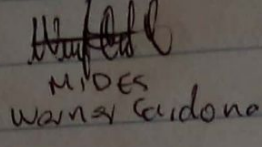 MIDES
Warner Cardona